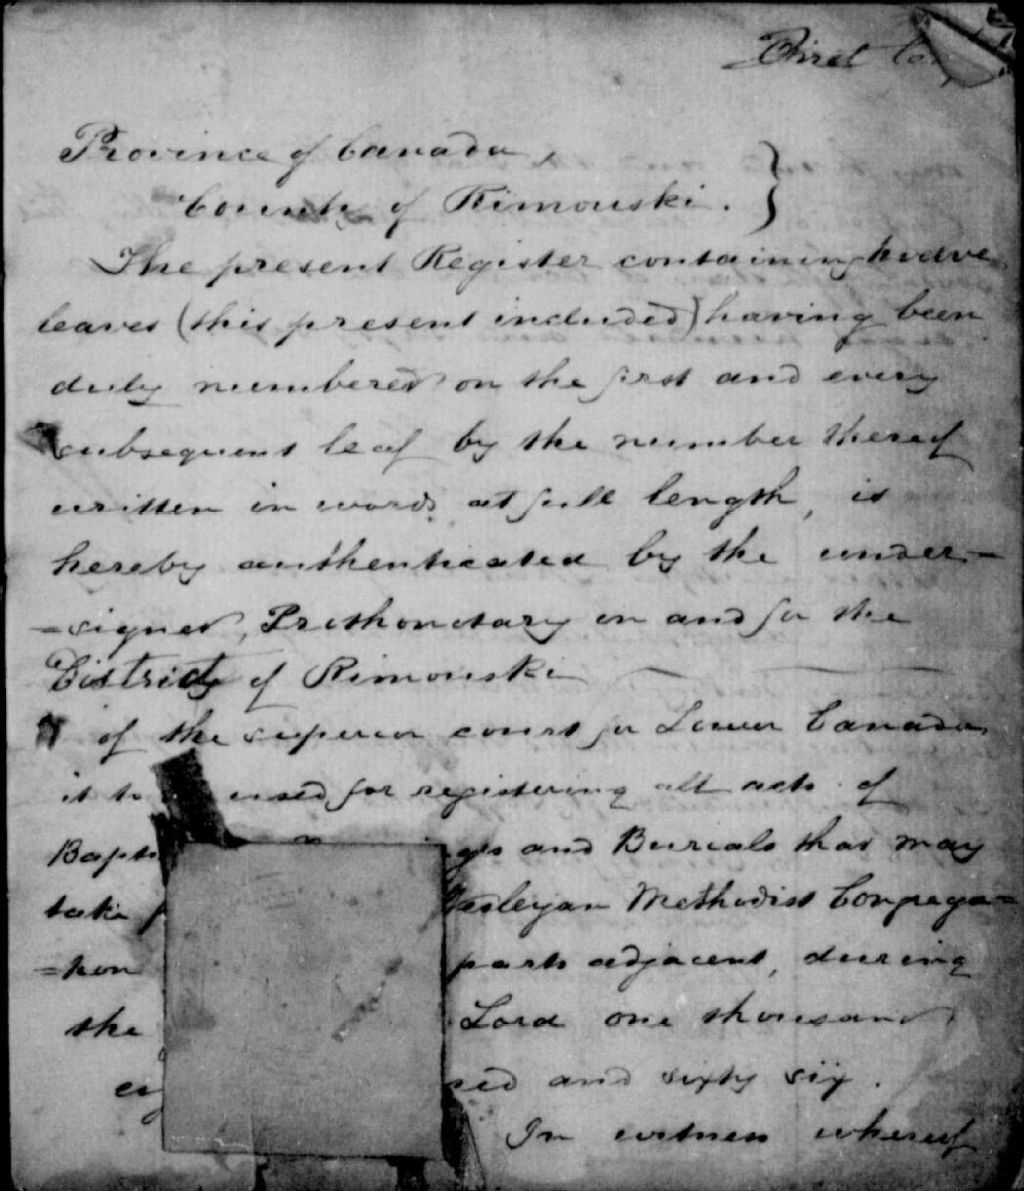 First
Province of Canada,
County of Rimouski. }
The present Register containing twelve
leaves (this present included) having been
duly numbered on the first and every
subsequent leaf by the number thereof
written in words at full length, is
hereby authenticated by the under=
=signed, Prothonotary in and for the
District of Rimouski
of the superior court for Lower Canada,
it to used for registering all acts of
Bapti ges and Burials that may
take Wesleyan Methodist Congrega=
=tion parts adjacent, during
the Lord one thousand
ei red and sixty six.
In witness whereof